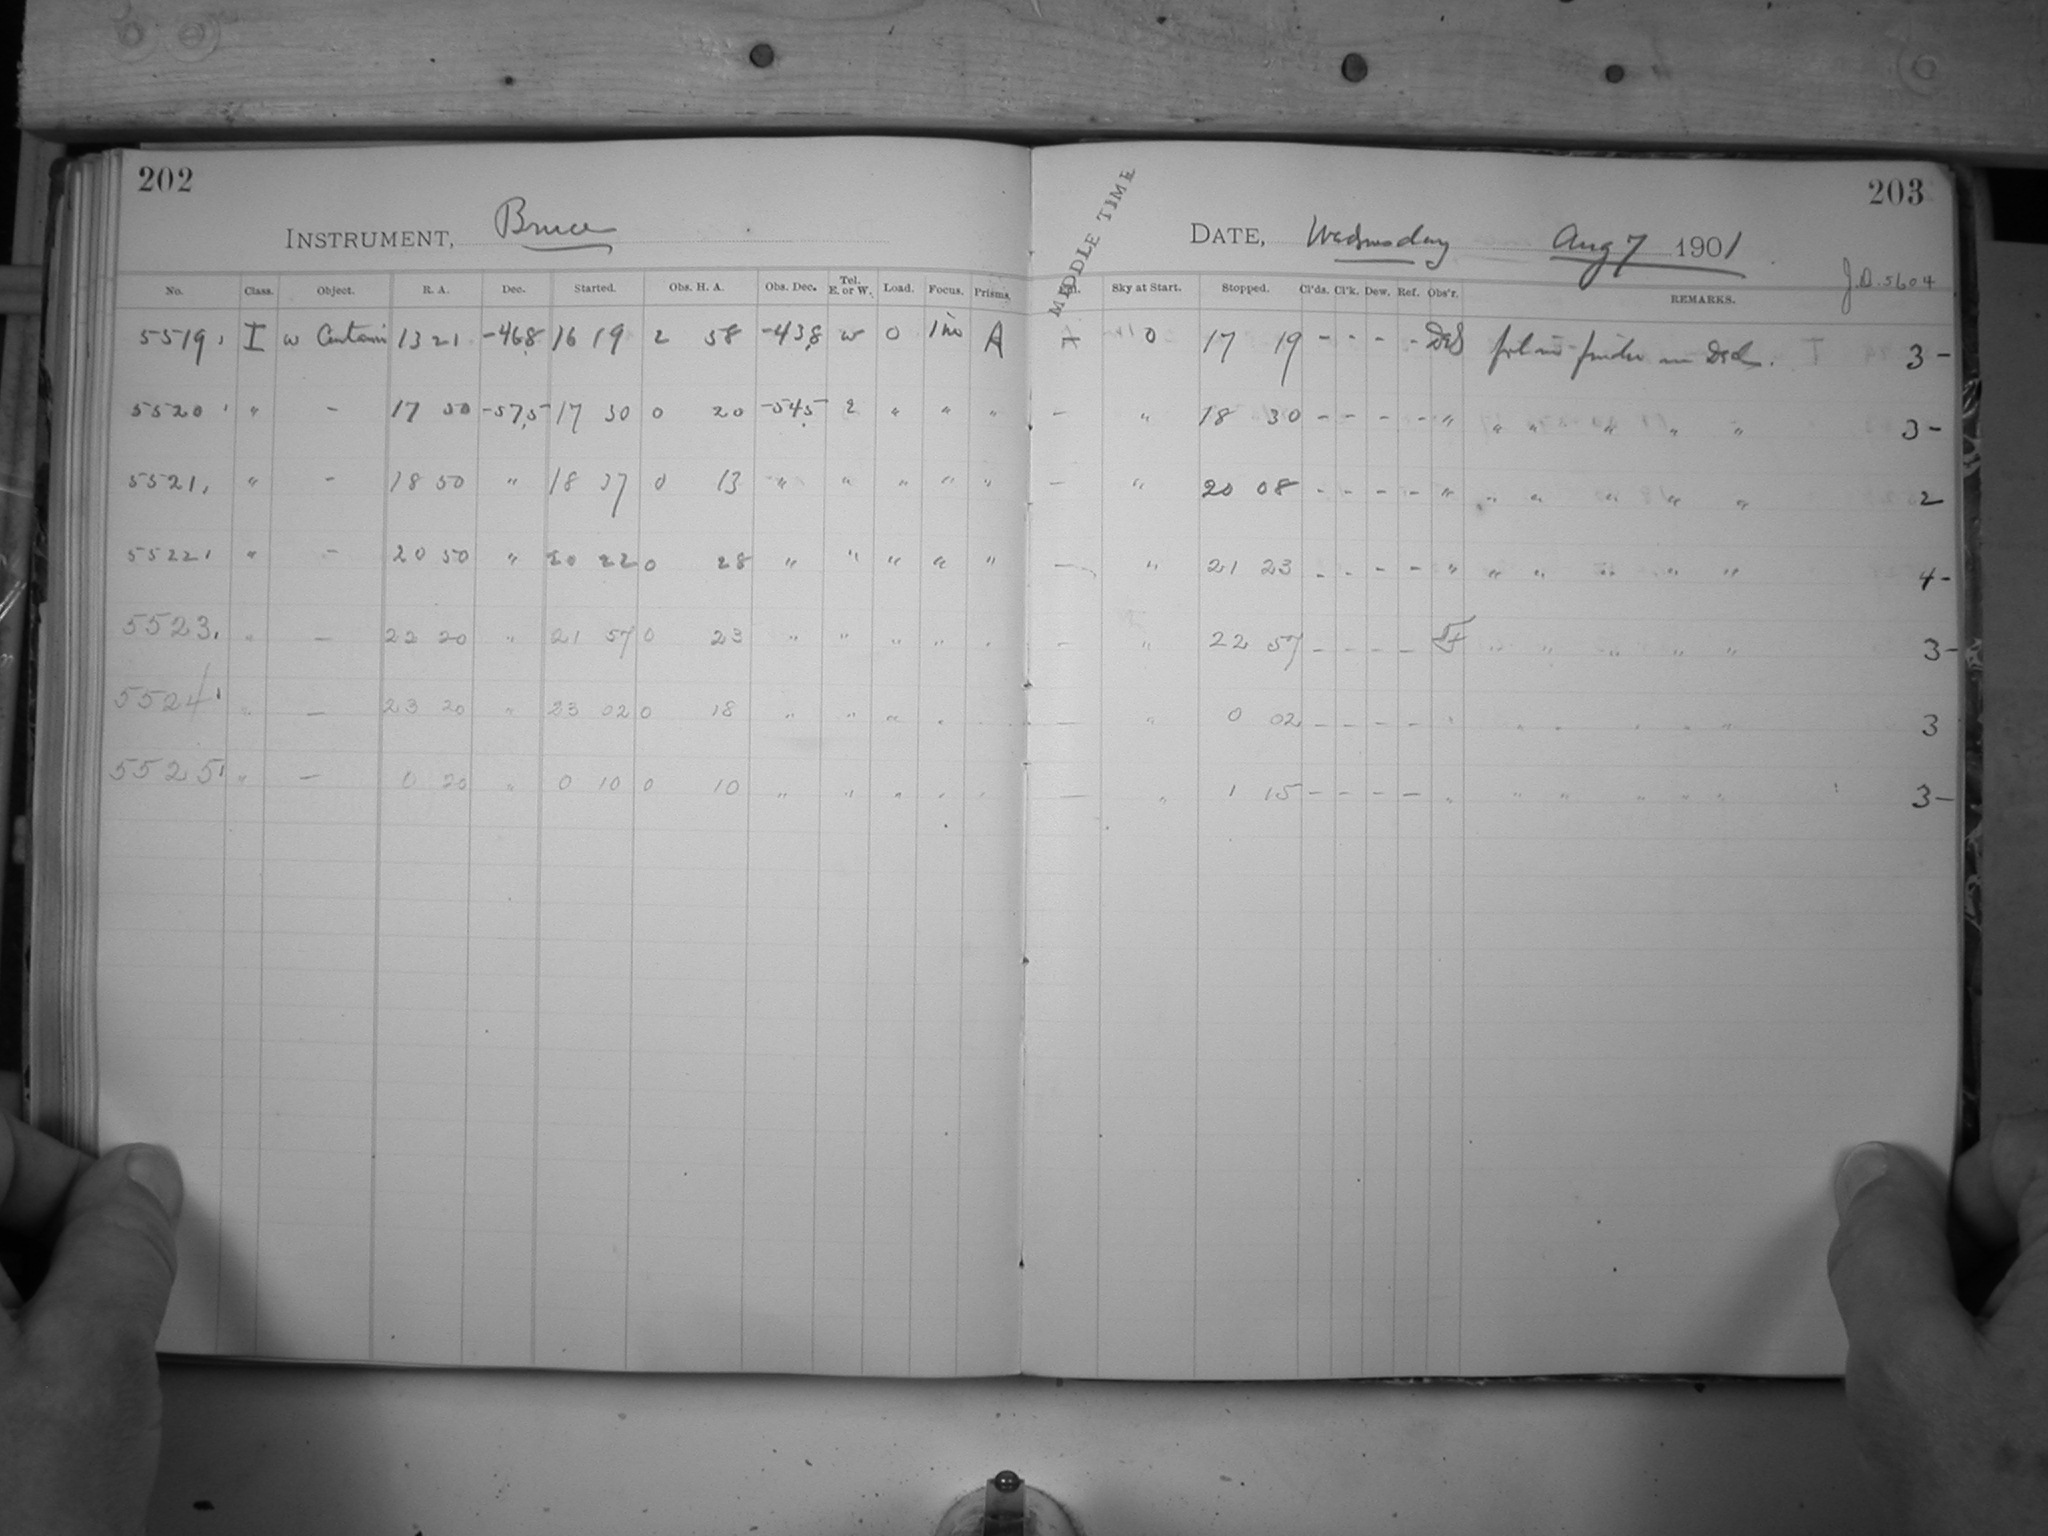 202
INSTRUMENT, Bruce
No. Class. Object. R. A. Dec. Started. Obs. H. A. Obs. Dec. Tel. E. or W. Load. Focus. Prisms.
5519, I ω Centauri 13 21 -46.8 16 19 2 58 -43.8 W 0 A
5520 " - 17 50 -57.5 17 30 0 20 -54.5 " " "
5521, " - 18 50 " 18 37 0 13 " " " " "
5522, " - 20 50 " 20 22 0 28 " " " " "
5523, " - 22 20 " 21 57 0 23 " " " " "
5524 " - 23 20 " 23 02 0 18 " " " " "
5525 " - 0 20 " 0 10 0 10 " " " " "
203
MIDDLE TIME
DATE, Wednesday Aug 7 1901
J.D. 5604
Sky at Start. Stopped. Cl'ds. Cl'k. Dew. Ref. Obs'r. REMARKS.
A 0 17 19 - - - - finder in Decl. 3 -
- " 18 30 - - - - " " " " " " 3 -
- " 20 08 - - - - " " " " " " 2
- " 21 23 - - - - " " " " " " 4 -
- " 22 57 - - - - " " " " " 3 -
- " 0 02 - - - - " " " " " " 3
- " 1 15 - - - - " " " " " " 3 -